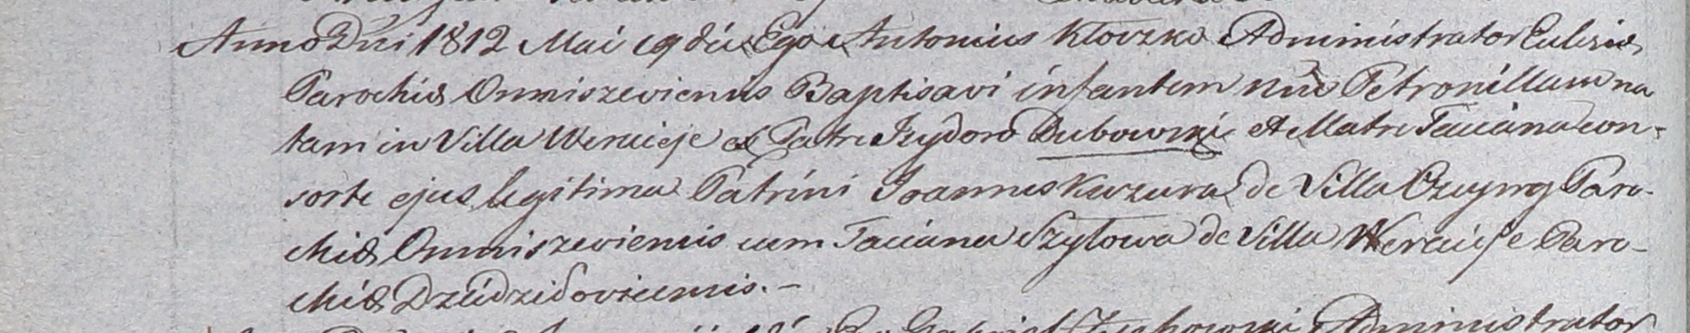 Anno Dni 1812 Mai 19 die Ego Antonius Kłoczko Administrator Eclesiæ
Parochiæ Onmiszeviensis Baptisavi infantem nñe Petronillam na
tam in Villa Wercieje ex Patre Izydoro Dubowski et Matre Taciana con-
sorte ejus legitima Patrini Joannes Kurzura de Villa Paro-
chiæ Onmiszeviensis cum Taciana Szyłowa de Villa Wercieje Paro-
chiæ Dziudziłoviensis. -
Gabriel Administrator